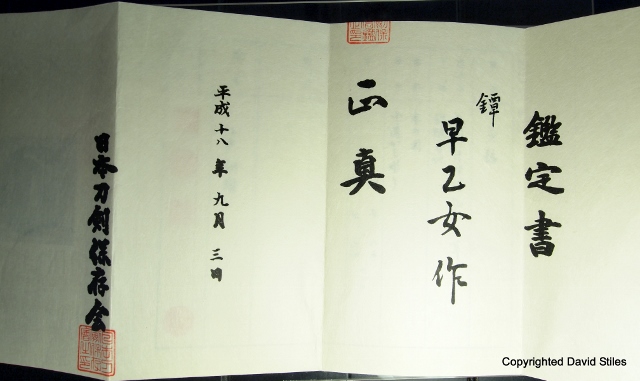 鑑定書
鐔
早乙女作
正真
平成十八年九月三日
日本刀剣保存会
Copyrighted David Stiles